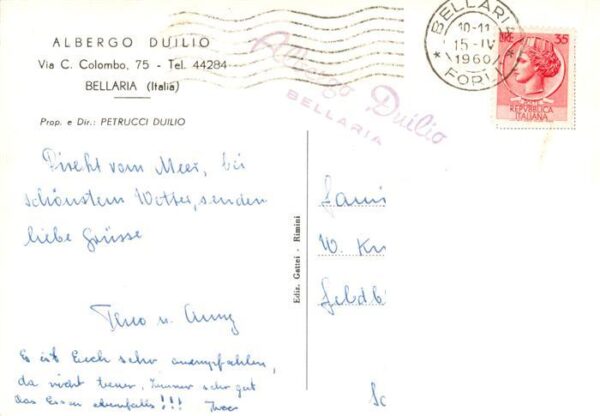 ALBERGO DUILIO
Via C. Colombo, 75 - Tel. 44284
BELLARIA (Italia)
Prop. e Dir.: PETRUCCI DUILIO
Albergo Duilio
BELLARIA
BELLARIA
10-11
15-IV
1960
FORLI
LIRE 35
REPVBBLICA
ITALIANA
Direkt vom Meer, bei
schönstem Wetter, senden
liebe Grüsse
u.
Es ist Euch sehr anempfahlen,
da nicht teuer. Zimmer sehr gut
das Essen ebenfalls!!!
Ediz. Gattei - Rimini
Fami
W. Kn
Feldb